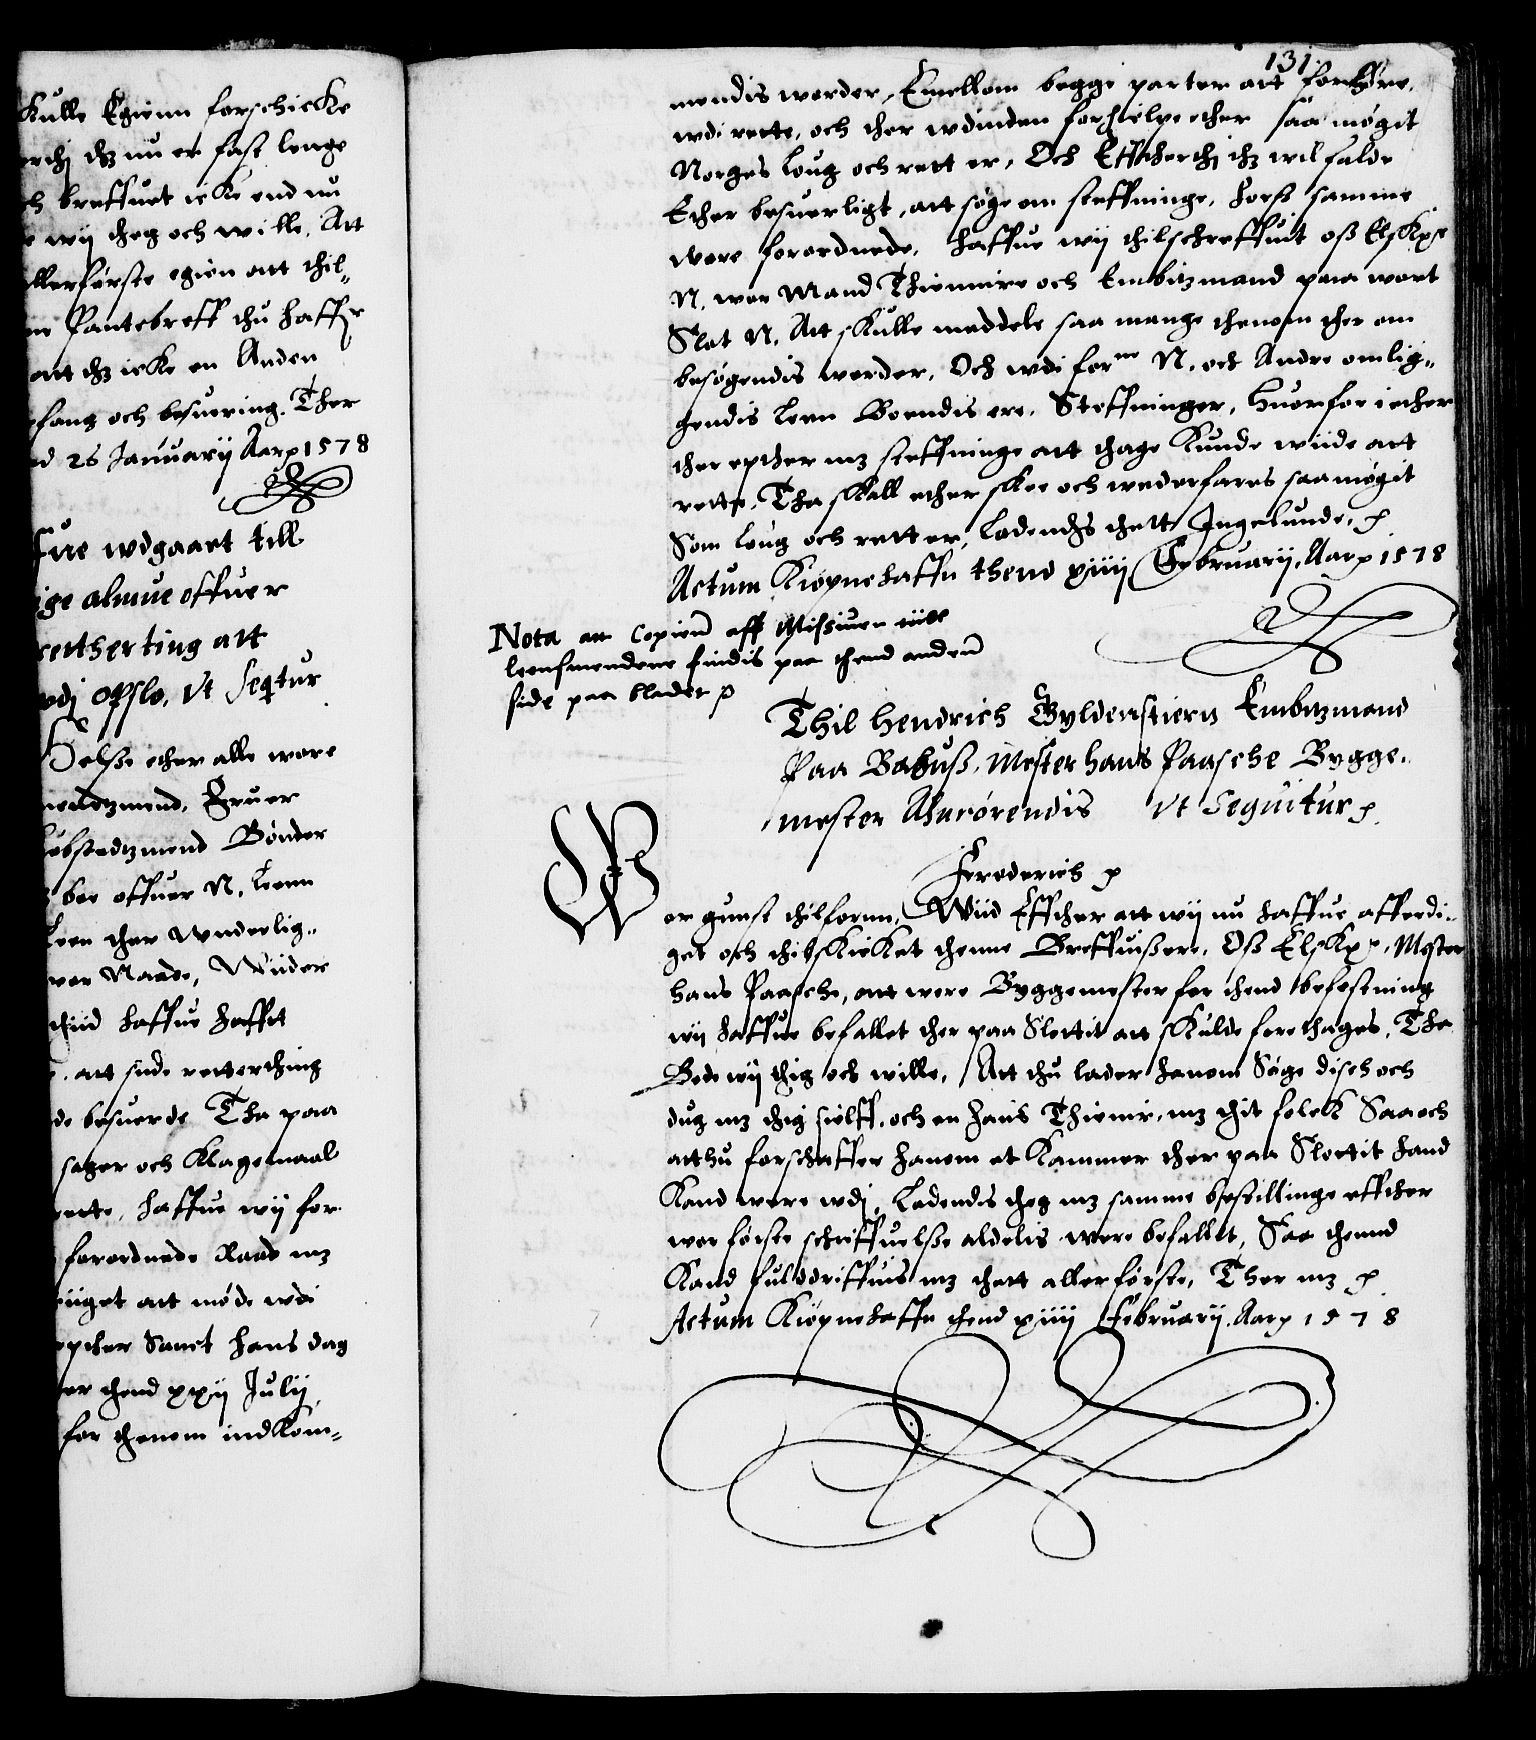 Kulle Egienn forschicke
dz nu er fast lenge
breffuet icke end nu
wij theg och wille, Att
allerførste egien att thil-
Pantebreff thu haffr
att dz icke en Anden
fang och besuering. Ther
26 Januarij Aarp 1578
wdgaaet till
ige almue offuer
retherting att
wdj Opslo, Vt Seqtur
Helsße ether alle wore
mendtzmend, Fruer
kiøbstedtzmend Bønder
boe offuer N. Leenn
Leen ther wnderlig-
vor Naade, Wiider
thiid haffue hafft
att sude retterthing
besuerde Tha paa
sager och Klagemaal
rette, haffue wij for
forordnede Raad mz
att møde wdi
epther Sanct Hans dag
er thend xxij Julij
for thenom indkom-
131
mendis worder, Emellom begge parter att forhøre,
wdi rette, och ther wdinden forhielpe ether saa møgit
Norges loug och rett er, Och Effther thj thz wil falde
Ether besuerligt, att søge om steffninge, førß samme
wore forordnede, haffue wij thilschreffuit oß Elskpe
N. wor Mand Thiennire och Embitzmand paa wort
Slot N. Att skulle meddele saa mange thenom ther om
besøgendis worder, Och wdi forne N. och Andre omlig-
gendis leen Boendis ere, Steffninger, Huorfor i ether
ther epther mz steffninge att thage kunde wiide att
rette, Tha skall ether skee och wederfares saa møgit
Som loug och rett er, Ladendhs thett Jngelunde, p
Actum Kiøpnehaffn thend xiiij Februarij, Aarp 1578
Nota att Copienn aff Missiuen till
leensmendene findis paa thend anden
side paa bladet p
Thil Hendrich Gyldenstiern Embitzmand
Paa Bahuß, Mester Hans Paasche Bygge-
mester Ahnrørendis Vt Sequitur p.
Frederich p
Wor gunst thilfornn, Wiid Effther att wij nu haffue afferdi-
get och thilskicket thenne Breffuißere, Oß Elskpe, Mester
Hans Paasche, att were Byggemester for thend befestning
wij haffue befallet ther paa Slottit att skulde forethages, Tha
Bede wij thig och wille, Att thu lader hanom Søge disch och
dug mz thig sielff, och en hans Thienir, mz thit folck Saa och
atthu forschaffer hanom et Kammer ther paa Slottit hand
Kand were wdj, Ladendis theg mz samme bestillinge effther
wor første schriffuelße aldelis were befallet, Saa thennd
Kand fulddriffuis mz thett allerførste, Ther mz p
Actum Kiøpnehaffn thend xiiij Februarij, Aarp 1578